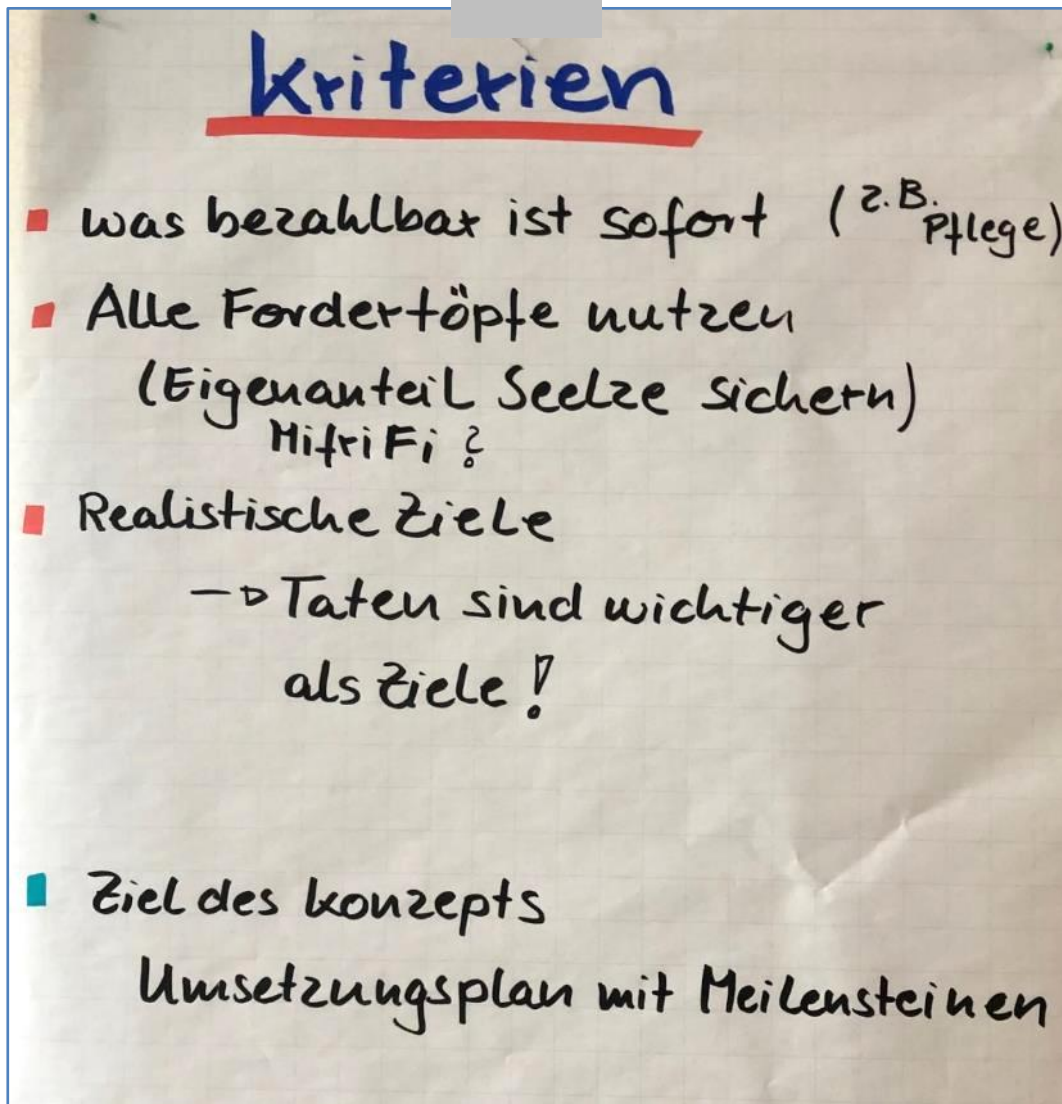 Kriterien
was bezahlbar ist sofort (z.B. Pflege)
Alle Fordertöpfe nutzen
(Eigenanteil Seelze sichern)
MifriFi ?
Realistische Ziele
→ Taten sind wichtiger
als Ziele!
Ziel des Konzepts
Umsetzungsplan mit Meilensteinen